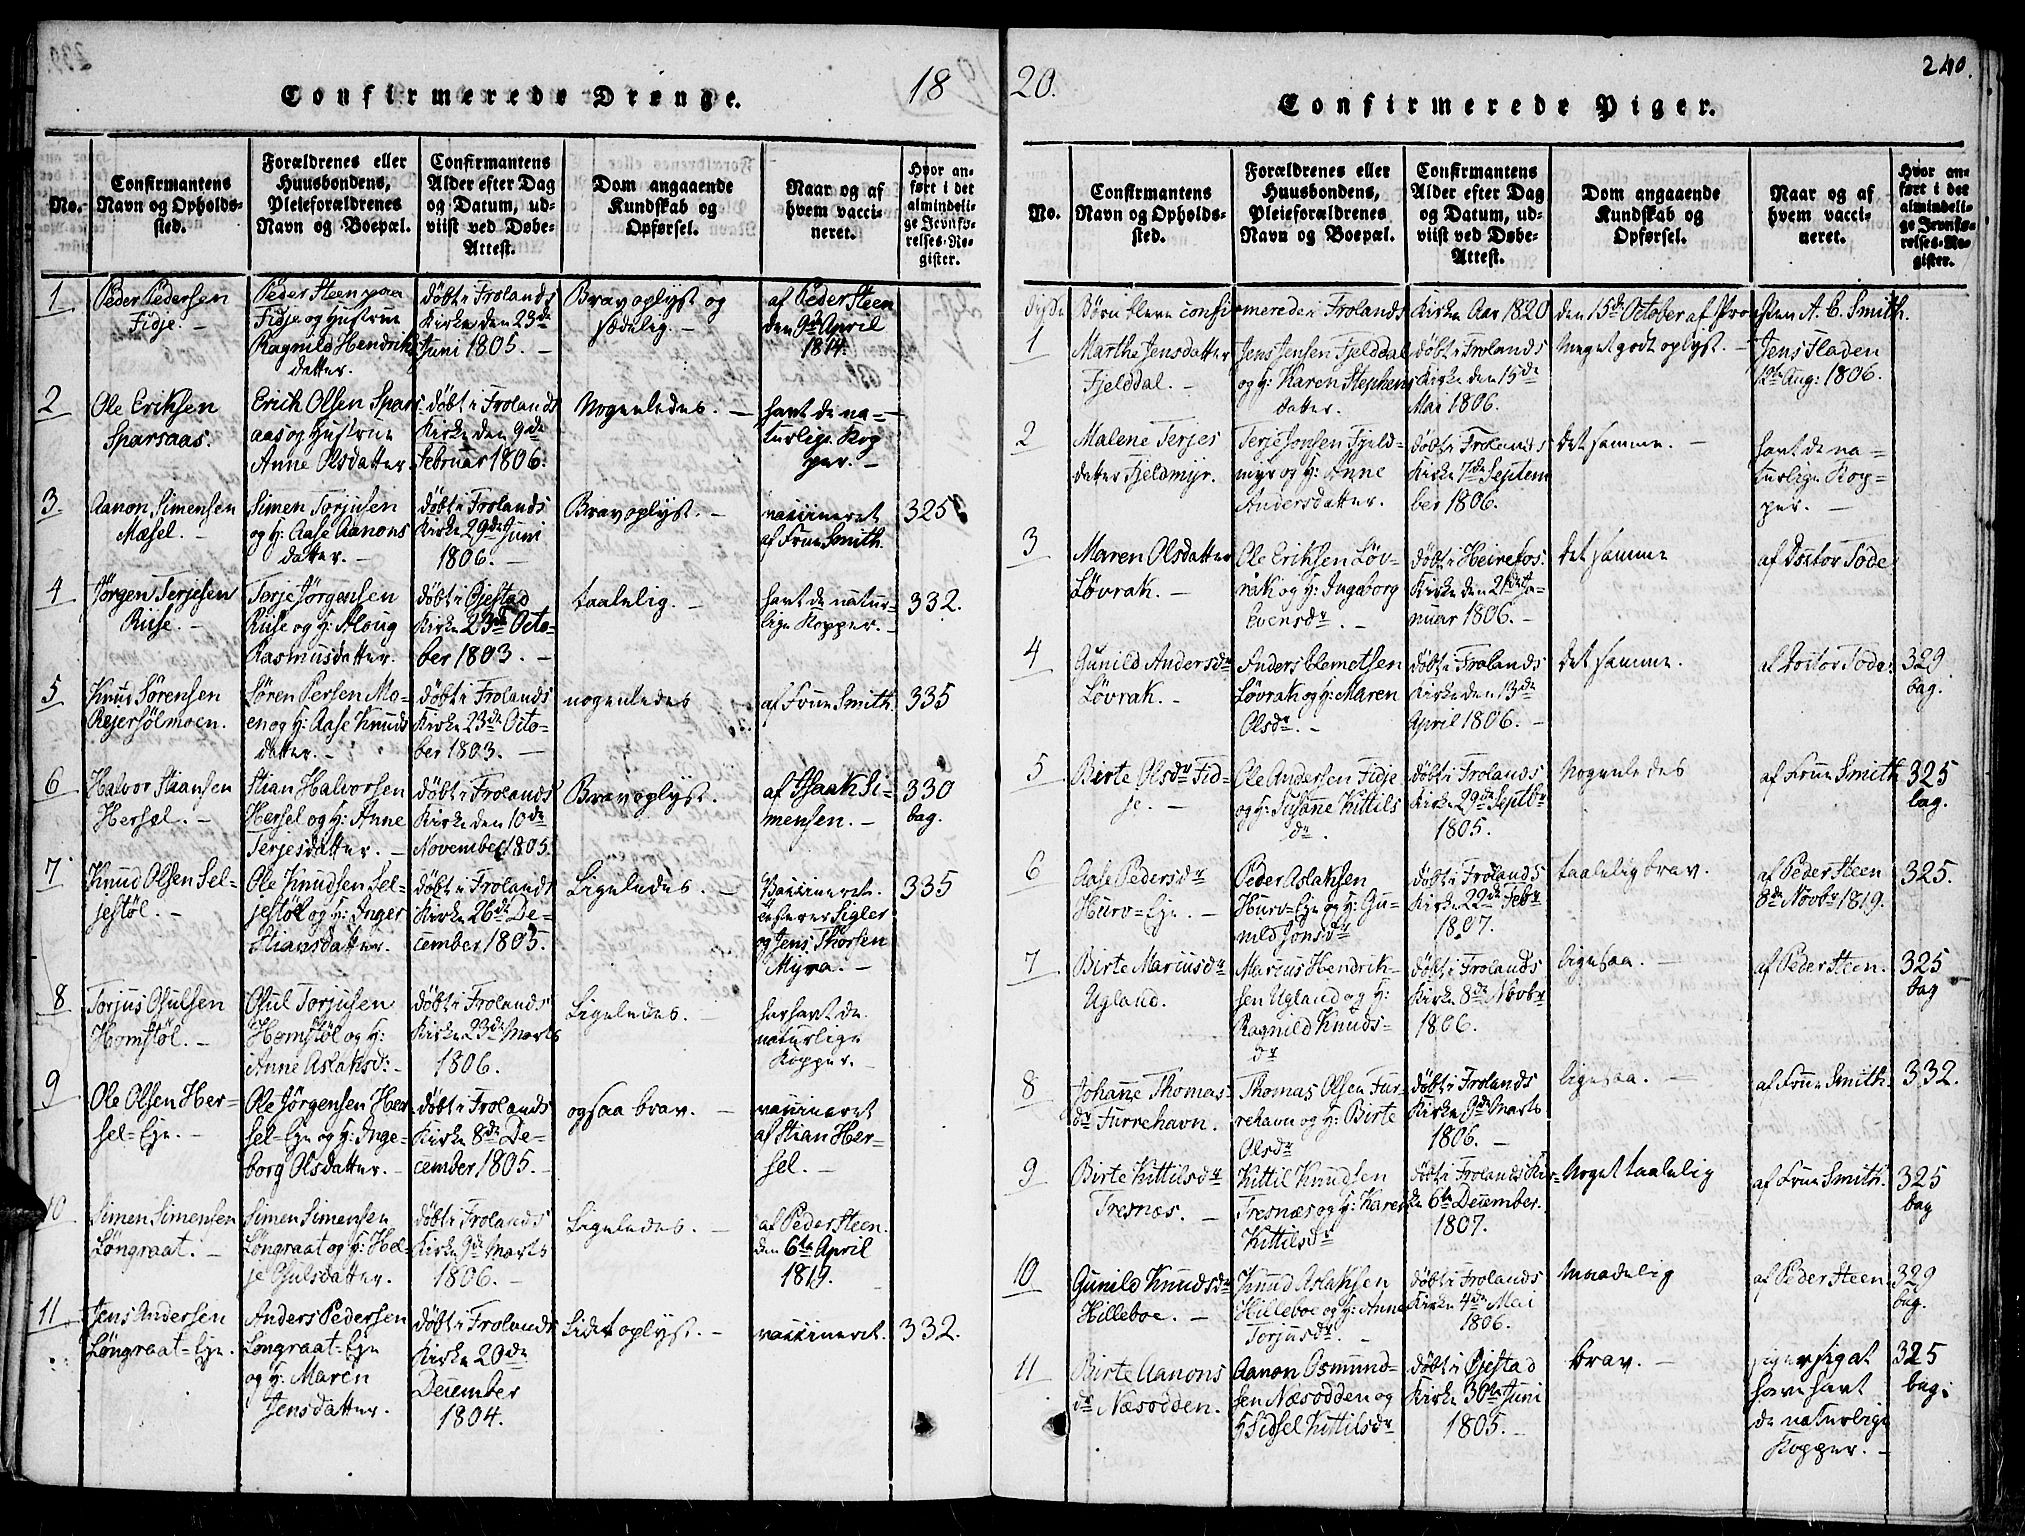 18
Confirmerede Drenge.
No.
Confirmantens
Navn og Opholds-
sted.
Forældrenes eller
Huusbondens,
Pleieforældrenes
Navn og Boepæl.
Confirmantens
Alder efter Dag
og Datum, ud-
viist ved Døbe-
Attest.
Dom angaaende
Kundskab og
Opførsel.
Naar og af
hvem vacci-
neret.
Hvor an-
ført i det
almindeli-
ge Jevnfø-
relses-Re-
gister.
1
Peder Pedersen
Fidje. -
Peder Steen paa
Fidje og Hustrue
Ragnild Hendriks
datter.
døbt i Frolands
Kirke den 23de
Juni 1805. -
Brav oplyst og
sædelig. -
af Peder Steen
den 9de April
1814.
2
Ole Eriksen
Sparsaas.
Erich Olsen Spars
aas og Hustrue
Anne Olsdatter
døbt i Frolands
Kirke den 9de
Februar 1806.
Nogenledes. -
havt de na-
turlige Kop
per. -
3.
Aanon Simensen
Mæsel. -
Simen Torjusen
og H: Aase Aanons
datter. -
døbt i Frolands
Kirke 29de Juni
1806. -
Brav oplyst. -
vaccineret
af Frue Smith.
325
4
Jörgen Terjesen
Riise. -
Terje Jörgensen
Riise og H: Aloug
Rasmusdatter.
døbt i Øiestad
Kirke 23de Octo-
ber 1803. -
taalelig. -
havt de natur-
lige Kopper. -
332.
5
Knud Sörensen
Rejersölmoen.
Sören Persen Mo-
en og H: Aase Knuds
datter. -
døbt i Frolands
Kirke 23de Octo-
ber 1803. -
nogenledes
af Frue Smith.
335
6
Halvor Stiansen
Hersel. -
Stian Halvorsen
Hersel og H: Anne
Terjesdatter. -
døbt i Frolands
Kirke den 10de
November 1805.
Brav oplyst.
af Isaak Si-
mensen. -
330
bag.
7
Knud Olsen Sel-
jestöl. -
Ole Knudsen Sel-
jestöl og H: Inger
Stiansdatter.
døbt i Frolands
Kirke 26de De-
cember 1805.
Ligeledes. -
Vaccineret
Sigler
og Jens Thorsen
Myra. -
335
8
Torjus Osulsen
Homstöl. -
Osul Torjusen
Homstöl og H:
Anne Aslaksd: -
døbt i Frolands
Kirke 23de Marts
1806.
Ligeledes. -
har havt de
naturlige
Kopper. -
9
Ole Olsen Her-
sel-Eje. -
Ole Jörgensen Her
sel-Eje og H: Inge-
borg Olsdatter. -
døbt i Frolands
Kirke 8de De-
cember 1805. -
ogsaa brav. -
vaccineret
af Stian Her-
sel. -
10
Simen Simensen
Löngraat. -
Simen Simensen
Löngraat og H: Hel-
je Osulsdatter.
døbt i Frolands
Kirke 9de Marts
1806. -
Ligeledes. -
af Peder Steen.
den 6te April
1819.
11
Jens Andersen
Löngraat-Eje.
Anders Pedersen
Löngraat-Eje
og H: Maren
Jensdatter.
døbt i Frolands
Kirke 20de
December
1804.
Lidet oplyst. -
vaccineret.
332.
20.
240.
Confirmerede Piger.
No.
Confirmantens
Navn og Opholds-
sted.
Forældrenes eller
Huusbondens,
Pleieforældrenes
Navn og Boepæl.
Confirmantens
Alder efter Dag
og Datum, ud-
viist ved Døbe-
Attest.
Dom angaaende
Kundskab og
Opførsel.
Naar og af
hvem vacci-
neret.
Hvor an-
ført i det
almindeli-
ge Jevnfø-
relses-Re-
gister.
disse Börn bleve confirmerede i Frolands Kirke Aar 1820 den 15de October af Provsten A. C. Smith.
1
Marthe Jensdatter
Fjelddal. -
Jens Jensen Fjelddal
og H: Karen Stephens
datter.
døbt i Frolands
Kirke den 15de
Mai 1806.
Meget godt oplyst. -
Jens Fladen
12te Aug: 1806.
2
Malene Terjes
datter Fjeldmyr.
Terje Jonsen Fjeld-
myr og H: Anne
Andersdatter.
døbt i Frolands
Kirke 7de Septem
ber 1806.
det samme. -
havt de na-
turlige Kop-
per. -
3
Maren Olsdatter
Lövrak. -
Ole Eriksen Löv-
rak og H: Ingeborg
Evensdr. -
døbt i Heirefos
Kirke den 21de Ja-
nuar 1806. -
det samme
af Doctor Tode
4
Gunild Andersdr
Lövrak. -
Anders Clemetsen
Lövrak og H: Maren
Olsdr. -
døbt i Frolands
Kirke den 13de
April 1806. -
det samme.
af Doctor Tode.
329
bag.
5
Birte Olsdr Fid-
je. -
Ole Andersen Fidje
og H: Susane Kittils
dr.
døbt i Frolands
Kirke 29de Septbr
1805.
Nogenledes
af Frue Smith
325
bag.
6
Aase Pedersdr
Hurv-Eje. -
Peder Aslaksen
Hurv-Eje og H: Gu-
nild Jonsdr
døbt i Frolands
Kirke 22de Febr
1807.
taalelig brav.
af Peder Steen
8de Novbr 1819.
325.
7
Birte Mariusdr
Ugland.
Marius Hendrik-
sen Ugland og H:
Ragnild Knuds-
dr
døbt i Frolands
Kirke 8de Novbr
1806.
ligesaa. -
af Peder Steen.
325
bag
8
Johanne Thomas-
dr Furrehavn.
Thomas Olsen Fur-
rehavn og H: Birte
Olsdr
døbt i Frolands
Kirke 9de Marts
1806. -
ligesaa. -
af Frue Smith.
332.
9
Birte Kittilsdr
Tresnæs. -
Kittil Knudsen
Tresnæs og H: Karen
Kittilsdr
døbt i Frolands Kir-
ke 6te December.
1807.
Noget taalelig
af Frue Smith.
325
bag
10
Gunild Knudsdr
Hilleboe. -
Knud Aslaksen
Hilleboe og H: Anne
Torjusdr. -
døbt i Frolands
Kirke 4de Mai
1806.
Maadelig
af Peder Steen.
329
bag.
11
Birte Aanons
dr Næsodden.
Aanon Osmund-
sen Næsodden og
H Sidsel Kittilsdr
døbt i Øiestad
Kirke 30te Juni
1805. -
brav. -
siger sig at
have havt
de naturlige
Kopper. -
325
bag.